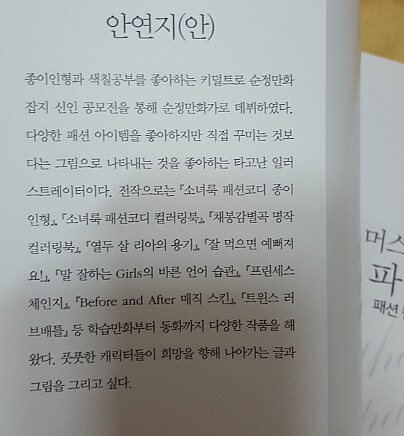 안연지(안)
종이인형과 색칠공부를 좋아하는 키덜트로 순정만화
잡지 신인 공모전을 통해 순정만화가로 데뷔하였다.
다양한 패션 아이템을 좋아하지만 직접 꾸미는 것보
다는 그림으로 나타내는 것을 좋아하는 타고난 일러
스트레이터이다. 전작으로는 『소녀룩 패션코디 종이
인형』, 『소녀룩 패션코디 컬러링북』, 『채봉감별곡 명작
컬러링북』, 『열두 살 리아의 용기』, 『잘 먹으면 예뻐져
요!』, 『말 잘하는 Girls의 바른 언어 습관』, 『프린세스
체인지』, 『Before and After 매직 스킨』, 『트윈스 러
브배틀』 등 학습만화부터 동화까지 다양한 작품을 해
왔다. 풋풋한 캐릭터들이 희망을 향해 나아가는 글과
그림을 그리고 싶다.
머스
파
패션